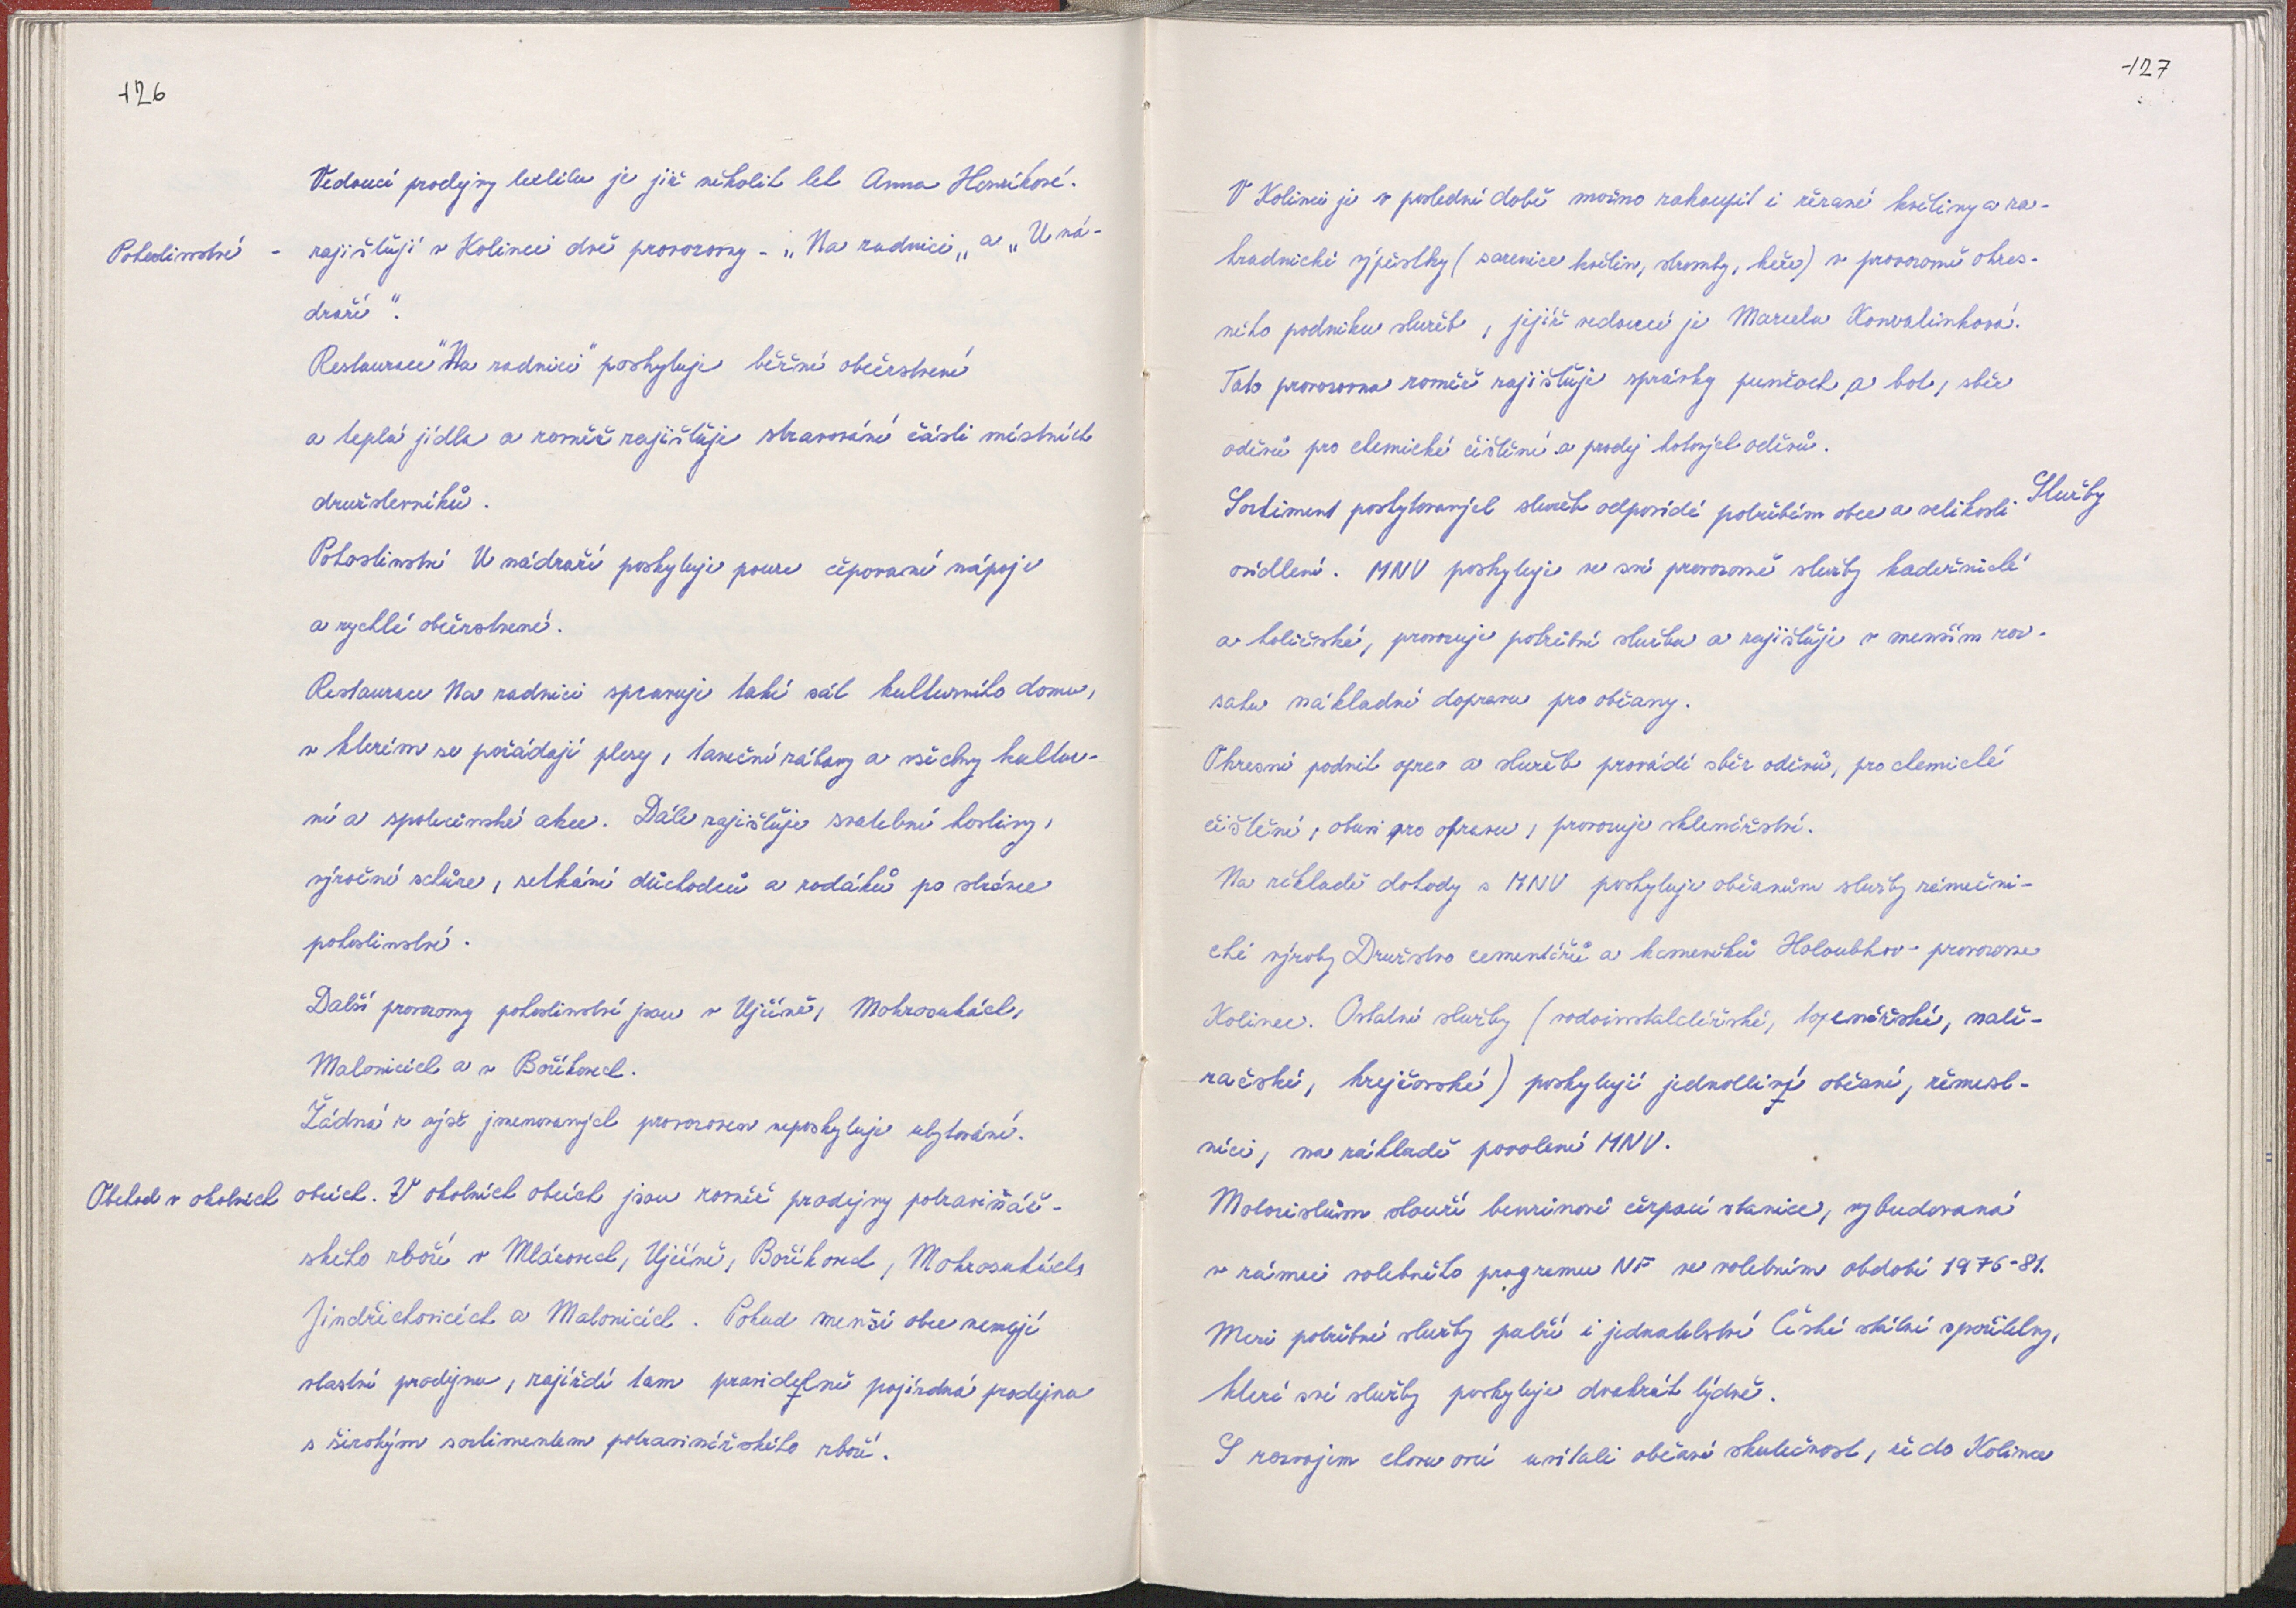 126
Vedoucí prodejny textilu je již několik let Anna Henríková.
Pohostinství - zajišťují v Kolinci dvě provozovny - „Na radnici„ a „U ná-
draží".
Restaurace "Na radnici" poskytuje běžné občerstvení
a teplá jídla a rovněž zajišťuje stravování části místních
družstevníků.
Pohostinství U nádraží poskytuje pouze čepované nápoje
a rychlé občerstvení.
Restaurace Na radnici spravuje také sál kulturního domu,
v kterém se pořádají plesy, taneční zábavy a všechny kultur-
ní a společenské akce. Dále zajišťuje svatební hostiny,
výroční schůze, setkání důchodců a rodáků po stránce
pohostinství.
Další provozovny pohostinství jsou v Ujčíně, Mokrosukách,
Malonicích a v Boříkovech.
Žádná z výše jmenovaných provozoven neposkytuje ubytování.
Obchod v okolních obcích. V okolních obcích jsou rovněž prodejny potravinář-
ského zboží v Mlázovech, Ujčíně, Boříkovech, Mokrosukách,
Jindřichovicích a Malonicích. Pokud menší obce nemají
vlastní prodejnu, zajíždí tam pravidelně pojízdná prodejna
s širokým sortimentem potravinářského zboží.
127
V Kolinci je v poslední době možno zakoupit i řezané květiny a za-
hradnické výpěstky (sazenice květin, stromky, keře) v provozovně okres-
ního podniku služeb, jejíž vedoucí je Marcela Konvalinková.
Tato provozovna rovněž zajišťuje správky punčoch a bot, sběr
oděvů pro chemické čištění a prodej hotových oděvů.
Sortiment poskytovaných služeb odpovídá potřebám obce a velikosti Služby
osídlení. MNV poskytuje ve své provozovně služby kadeřnické
a holičské, provozuje pohřební službu a zajišťuje v menším roz-
sahu nákladní dopravu pro občany.
Okresní podnik oprav a služeb provádí sběr oděvů, pro chemické
čištění, obuvi pro opravu, provozuje sklenářství.
Na základě dohody s MNV poskytuje občanům služby kamenické
výroby Družstvo cementářů a kameníků Holoubkov - provozovna
Kolinec. Ostatní služby (vodoinstalatérské, topenářské, natě-
račské, krejčovské) poskytují jednotliví občané, řemesl-
níci, na základě povolení MNV.
Motoristům slouží benzinová čerpací stanice, vybudovaná
v rámci volebního programu NF ve volebním období 1976-81.
Mezi potřebné služby patří i jednatelství České státní spořitelny,
která své služby poskytuje dvakrát týdně.
S rozvojem chovu ovcí uvítali občané skutečnost, že do Kolince